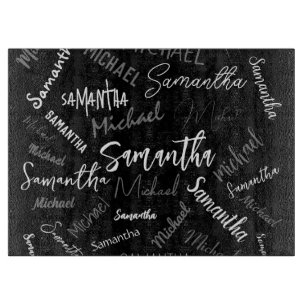 MICHAEL
MICHAEL
Samantha
Samantha
Samantha
SAMANTHA
Michael
SAMANTHA
Michael
Michael
Samantha
Michael
Michael
Samantha
Michael
Samantha
Michael
Michael
Samantha
Samantha
Samantha
Michael
Samantha